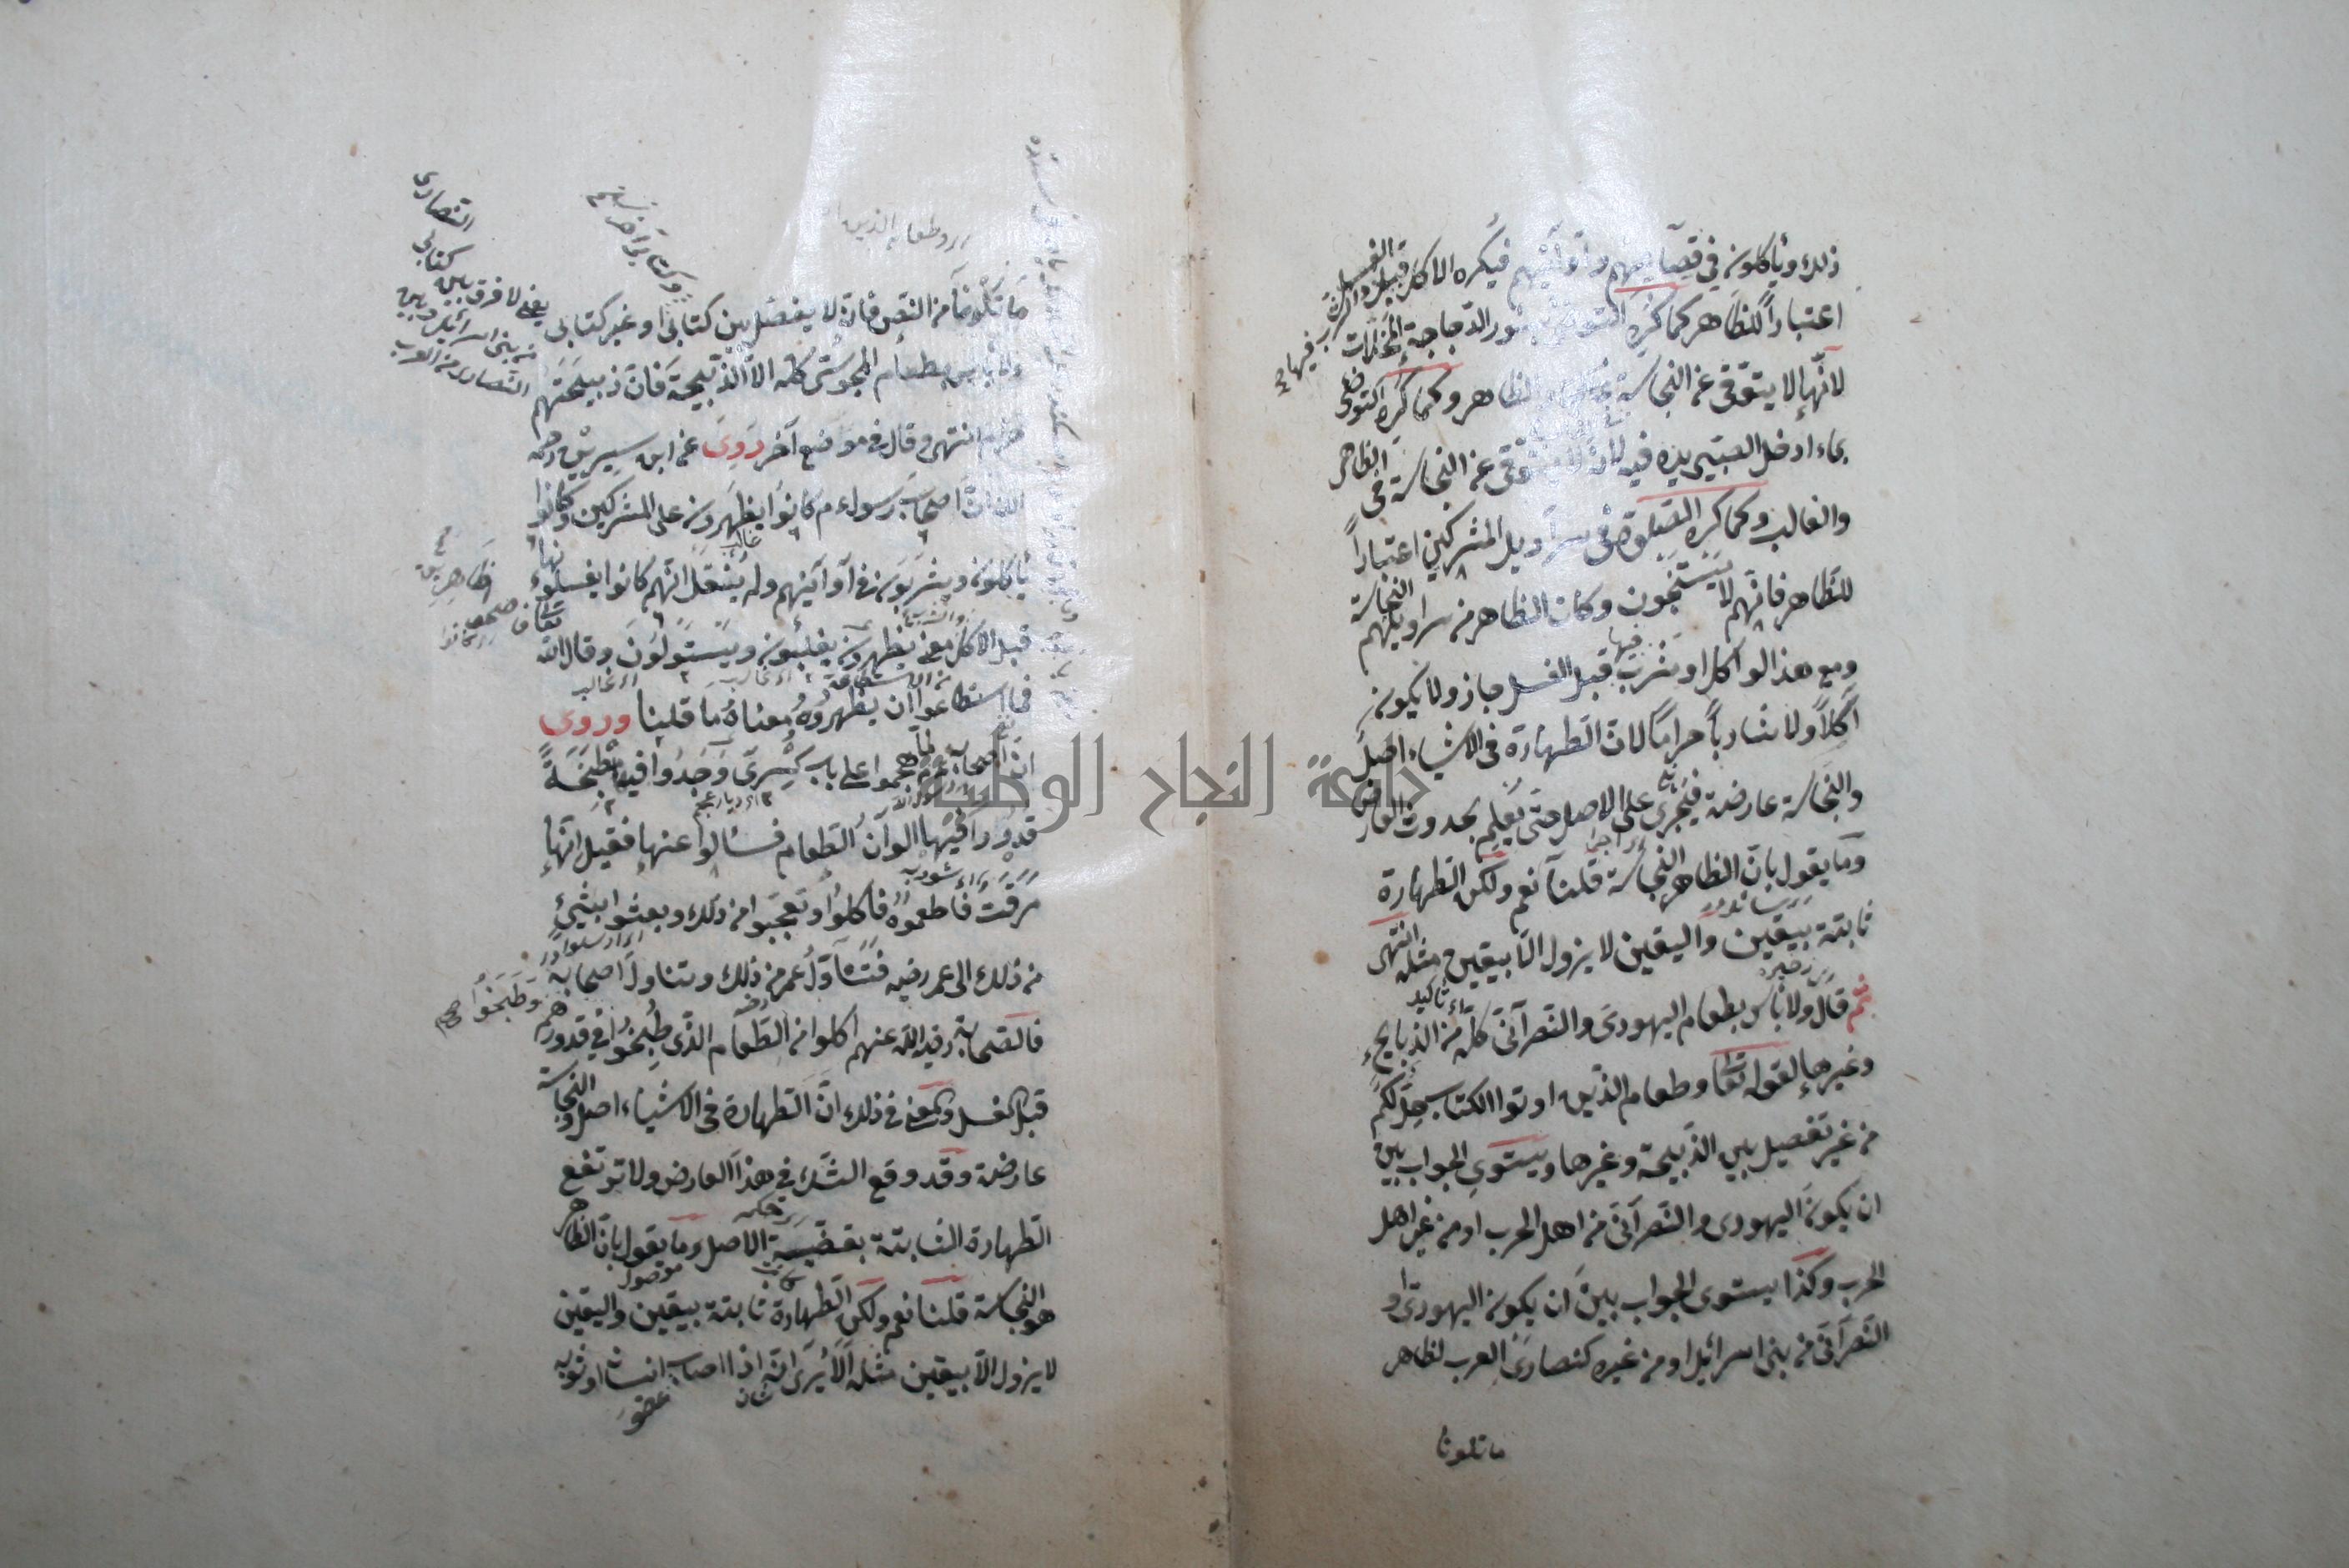 ذلك ويأكلون في قصاعهم وأوانيهم فيكره الاكل قبل الغسل
اعتباراً للظاهر كما كره التوضئ بسور الدجاجة المخلات
لانها لا يتوقى عن النجاسة في الظاهر وكما كره التوضى
بماء ادخل الصبى يده فيه لانه لا يتوقى عن النجاسة في الظاهر
والغالب وكما كره الصلوة في سراويل المشركين اعتباراً
للظاهر فانهم لا يستنجون وكان الظاهر من سراويلهم النجاسة
ومع هذا لو اكل او شرب فيها قبل الغسل جاز ولا يكون
آكلاً ولا شارباً حراماً لان الطهارة في الاشياء اصل
والنجاسة عارضة فيجرى على الاصل حتى يعلم بحدوث العارض
وما يقول بان الظاهر النجاسة قلنا نعم ولكن الطهارة
ثابتة بيقين واليقين لا يزول الا بيقين مثله انتهى
ثم قال ولا بأس بطعام اليهودى والنصرانى كله من الذبايح
وغيرها لقوله تعا وطعام الذين اوتوا الكتاب حل لكم
من غير تفصيل بين الذبيحة وغيرها ويستوى الجواب بين
ان يكون اليهودى والنصرانى من اهل الحرب او من غير اهل
الحرب وكذا يستوى الجواب بين ان يكون اليهودى او
النصرانى من بنى اسرائل او من غيره كنصارى العرب لظاهر
ما تلونا
ما تلونا من النص فانه لا يفصل بين كتابى او غير كتابى
ولا بأس بطعام المجوسى كله الا الذبيحة فان ذبيحتهم
حرام انتهى وقال في موضع آخر روى عن ابن سيرين رحمه
الله ان اصحاب رسول الله م كانوا يظهرون على المشركين وكانوا
يأكلون ويشربون في اوانيهم ولم ينقل انهم كانوا يغسلونها
قبل الاكل معنى يظهرون يغلبون ويستولون وقال الله تعا
فما اسطاعوا ان يظهروه معناه ما قلنا وروى
ان اصحاب لما هجموا على باب كسرى وجدوا فيه مطبخة
قدور فيها الوان الطعام فسألوا عنها فقيل انها
مرقت فاطعموه فاكلوا وتعجبوا من ذلك وبعثوا بشئ
من ذلك الى عمر رضيه فتناول عمر من ذلك وتناول اصحابه
فالصحابة رضي الله عنهم اكلوا من الطعام الذى طبخوا في قدورهم
قبل الغسل والمعنى في ذلك ان الطهارة في الاشياء اصل والنجاسة
عارضة وقد وقع الشك في هذا العارض ولا ترتفع
الطهارة الثابتة بقضية الاصل وما يقول بان الظاهر
هو النجاسة قلنا نعم ولكن الطهارة ثابتة بيقين واليقين
لا يزول الا بيقين مثله الا يرى انه اذا اصاب انسانا او ثوبه
يعنى لا فرق بين كتابى النصارى
من بنى اسرائل وبين
النصارى من العرب
وطبخوا صح
جامعة النجاح الوطنية